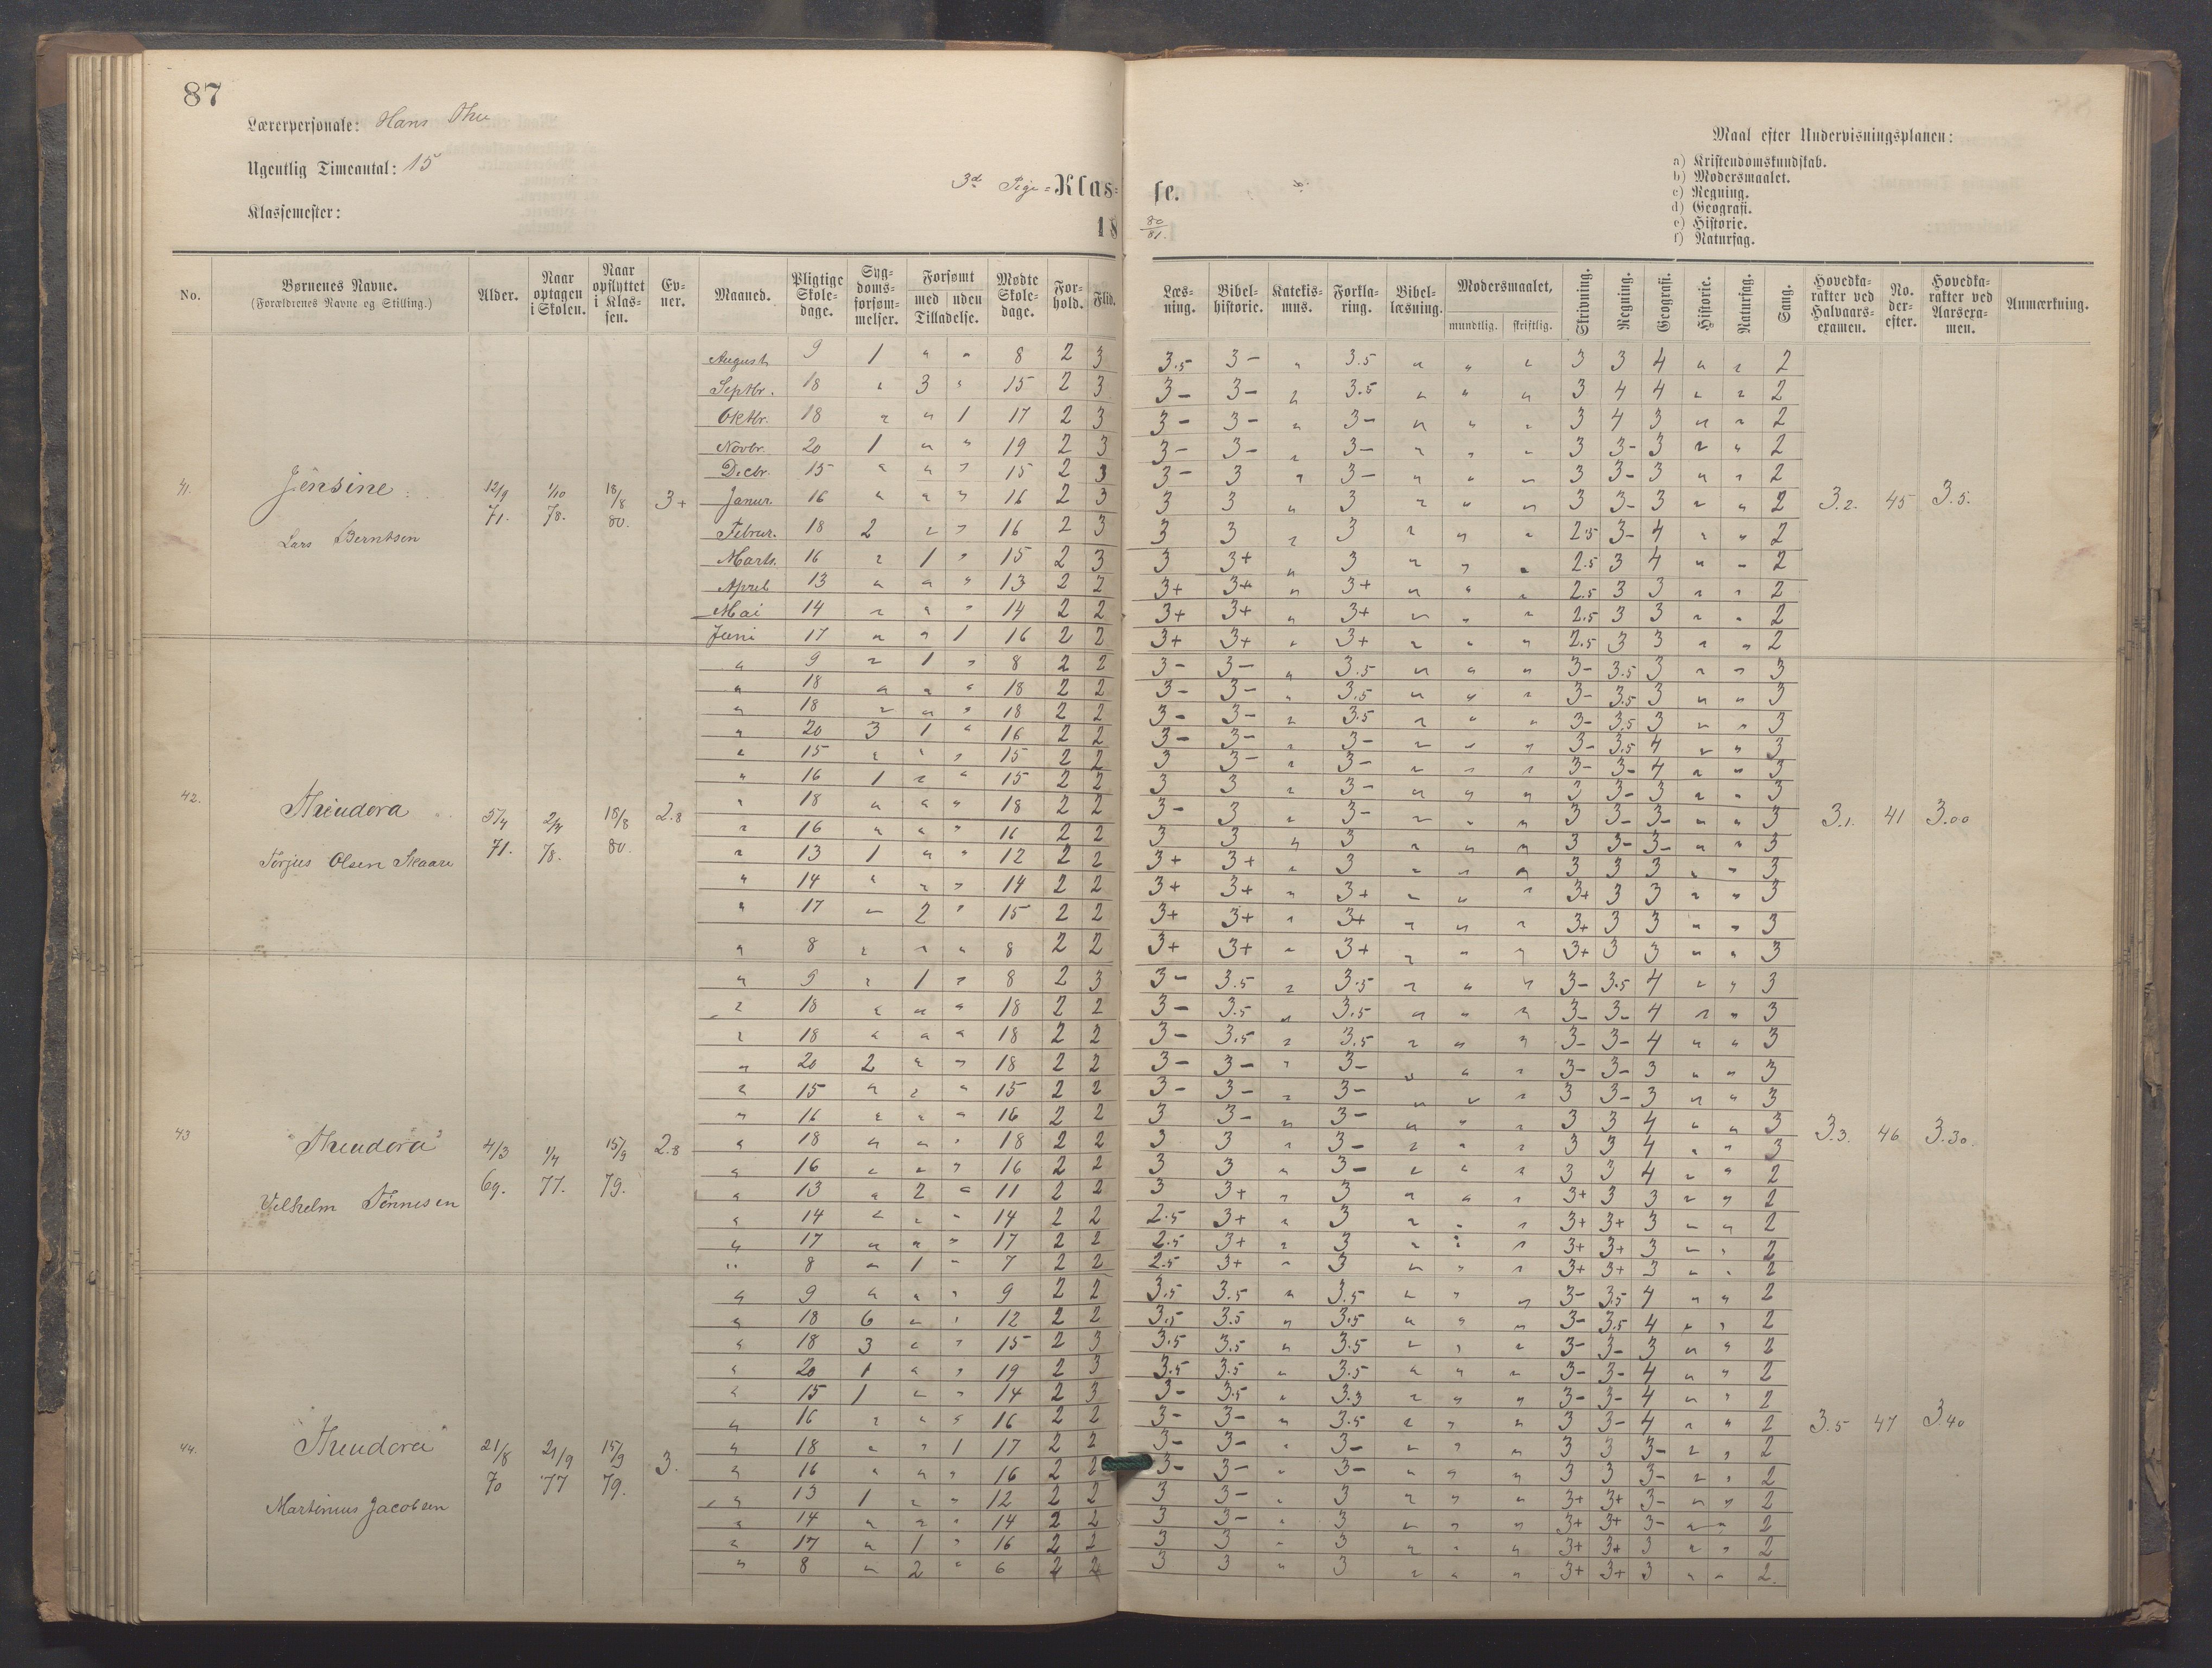 87
Lærerpersonale: Hans Thu
Ugentlig Timeantal: 15
Klassemester:
3d Pige= Klas=
18
se.
80/81.
Maal efter Undervisningsplanen:
a) Kristendomskundskab.
b) Modersmaalet.
c) Regning.
d) Geografi.
e) Historie.
f) Naturfag.
No. Børnenes Navne. (Forældrenes Navne og Stilling.) Alder. Naar optagen i Skolen. Naar opflyttet i Klassen. Evner. Maaned. Pligtige Skoledage. Sygdomsforsømmelser. Forsømt med uden Tilladelse. Mødte Skoledage. Forhold. Flid.
Læsning. Bibelhistorie. Katekismus. Forklaring. Bibellæsning. Modersmaalet, mundtlig. skriftlig. Skrivning. Regning. Geografi. Historie. Naturfag. Sang. Hovedkarakter ved Halvaarsexamen. No. derefter. Hovedkarakter ved Aarsexamen. Anmærkning.
41. Jensine Lars Berntsen 12/9 71. 1/10 78. 18/8 80. 3+ 3.2. 45 3.5.
August 9 1 " " 8 2 3 3.5 3- " 3.5 " " " 3 3 4 " " 2
Septbr. 18 " 3 " 15 2 3 3- 3- " 3.5 " " " 3 4 4 " " 2
Oktbr. 18 " " 1 17 2 3 3- 3- " 3- " " " 3 4 3 " " 2
Novbr. 20 1 " " 19 2 3 3- 3- " 3- " " " 3 3- 3 " " 2
Decbr. 15 " " " 15 2 3 3- 3 " 3- " " " 3 3- 3 " " 2
Januar. 16 " " " 16 2 3 3 3 " 3 " " " 3 3- 3 " " 2
Februr. 18 2 " " 16 2 3 3 3 " 3 " " " 2.5 3- 4 " " 2
Marts. 16 " 1 " 15 2 3 3 3+ " 3 " " " 2.5 3 4 " " 2
April 13 " " " 13 2 2 3+ 3+ " 3+ " " " 2.5 3 3 " " 2
Mai 14 " " " 14 2 2 3+ 3+ " 3+ " " " 2.5 3 3 " " 2
Juni 17 " " 1 16 2 2 3+ 3+ " 3+ " " " 2.5 3 3 " " 2
42. Theudora Torjus Olsen Skaare 5/4 71. 2/4 78. 18/8 80. 2.8 3.1. 41 3.00
" 9 " 1 " 8 2 2 3- 3- " 3.5 " " " 3- 3.5 3 " " 3
" 18 " " " 18 2 2 3- 3- " 3.5 " " " 3- 3.5 3 " " 3
" 18 " " " 18 2 2 3- 3- " 3.5 " " " 3- 3.5 3 " " 3
" 20 3 1 " 16 2 2 3- 3- " 3- " " " 3- 3.5 4 " " 3
" 15 " " " 15 2 2 3 3- " 3- " " " 3- 3- 4 " " 3
" 16 1 " " 15 2 2 3 3 " 3- " " " 3 3- 3 " " 3
" 18 " " " 18 2 2 3- 3 " 3- " " " 3 3- 3- " " 3
" 16 " " " 16 2 2 3 3 " 3 " " " 3 3- 3- " " 3
" 13 1 " " 12 2 2 3+ 3+ " 3 " " " 3 3 3 " " 3
" 14 " " " 14 2 2 3+ 3+ " 3+ " " " 3+ 3 3 " " 3
" 17 " 2 " 15 2 2 3+ 3+ " 3+ " " " 3+ 3 3 " " 3
" 8 " " " 8 2 2 3+ 3+ " 3+ " " " 3+ 3 3 " " 3
43 "Theudora" Vilhelm Tønnesen 4/3 69. 1/4 77. 15/9 79. 2.8 3.3. 46 3.30.
" 9 " 1 " 8 2 3 3- 3.5 " 3.5 " " " 3- 3.5 4 " " 3
" 18 " " " 18 2 2 3- 3.5 " 3.5 " " " 3- 3- 4 " " 3
" 18 " " " 18 2 2 3- 3.5 " 3.5 " " " 3- 3- 4 " " 3
" 20 2 " " 18 2 2 3- 3- " 3- " " " 3- 3- 3 " " 3
" 15 " " " 15 2 2 3- 3- " 3- " " " 3 3- 3 " " 3
" 16 " " " 16 2 2 3 3- " 3- " " " 3 3 4 " " 3
" 18 " " " 18 2 2 3 3 " 3- " " " 3 3 4 " " 3
" 16 " " " 16 2 2 3 3 " 3- " " " 3 3 4 " " 2
" 13 " 2 " 11 2 2 3 3+ " 3 " " " 3+ 3 3 " " 2
" 14 " " " 14 2 2 2.5 3+ " 3 " " " 3+ 3+ 3 " " 2
" 17 " " " 17 2 2 2.5 3+ " 3 " " " 3+ 3+ 3 " " 2
" 8 " 1 " 7 2 2 2.5 3+ " 3 " " " 3+ 3+ 3 " " 2
44. "Theudora" Martinius Jacobsen 21/8 70 21/9 77 15/9 79. 3. 3.5 47 3.40
" 9 " " " 9 2 2 3.5 3.5 " 3.5 " " " 3- 3.5 4 " " 2
" 18 6 " " 12 2 2 3.5 3.5 " 3.5 " " " 3- 3.5 4 " " 2
" 18 3 " " 15 2 3 3.5 3.5 " 3.5 " " " 3- 3- 3 " " 2
" 20 1 " " 19 2 3 3.5 3.5 " 3.5 " " " 3- 3- 4 " " 2
" 15 1 " " 14 2 3 3- 3.5 " 3.3 " " " 3- 3- 4 " " 2
" 16 " " " 16 2 2 3- 3- " 3.5 " " " 3 3- 4 " " 2
" 18 " " 1 17 2 2 3- 3- " 3- " " " 3 3 3- " " 2
" 16 " " " 16 2 2 3- 3- " 3- " " " 3 3 3- " " 2
" 13 1 " " 12 2 2 3 3- " 3 " " " 3+ 3+ 3- " " 2
" 14 " " " 14 2 2 3 3- " 3 " " " 3+ 3+ 3- " " 2
" 17 " 1 " 16 2 2 3 3 " 3 " " " 3+ 3+ 3 " " 2
" 8 " 2 " 6 2 2 3 3 " 3 " " " 3+ 3+ 3 " " 2.